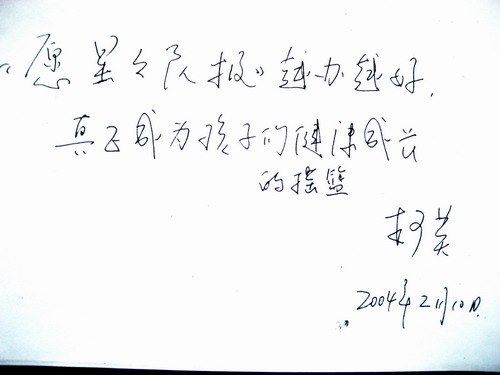 《愿星々队报》越办越好.
真正成为孩子们健康成长
的摇篮
柯
2004年2月10日.